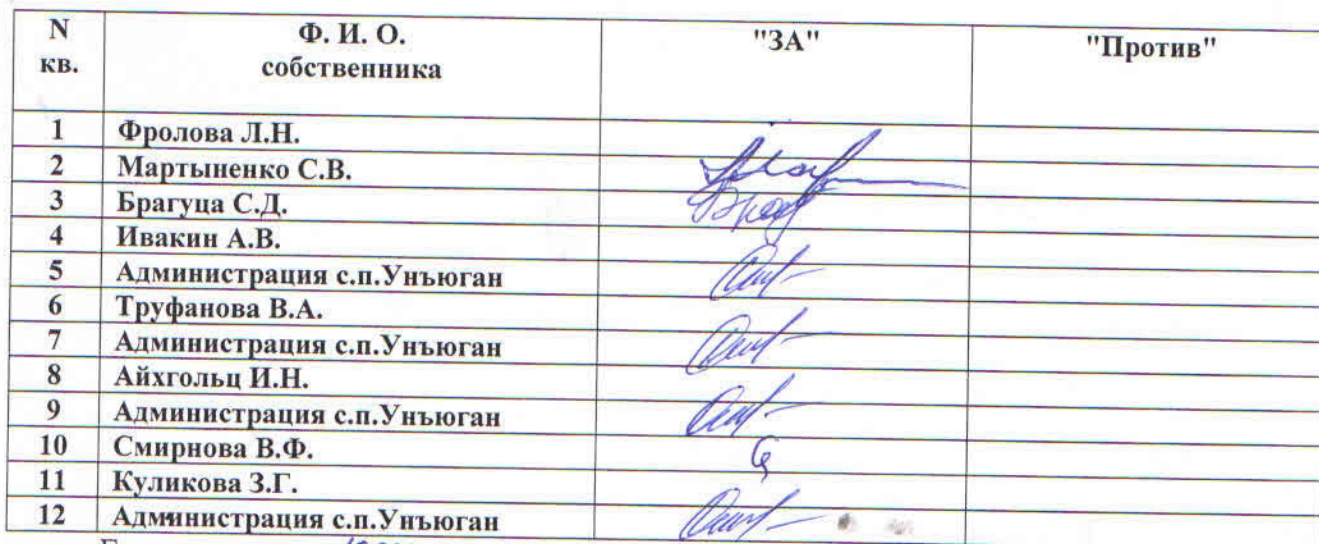 N кв. Ф. И. О. собственника "ЗА" "Против"
1 Фролова Л.Н.
2 Мартыненко С.В.
3 Брагуца С.Д.
4 Ивакин А.В.
5 Администрация с.п.Унъюган
6 Труфанова В.А.
7 Администрация с.п.Унъюган
8 Айхгольц И.Н.
9 Администрация с.п.Унъюган
10 Смирнова В.Ф.
11 Куликова З.Г.
12 Администрация с.п.Унъюган